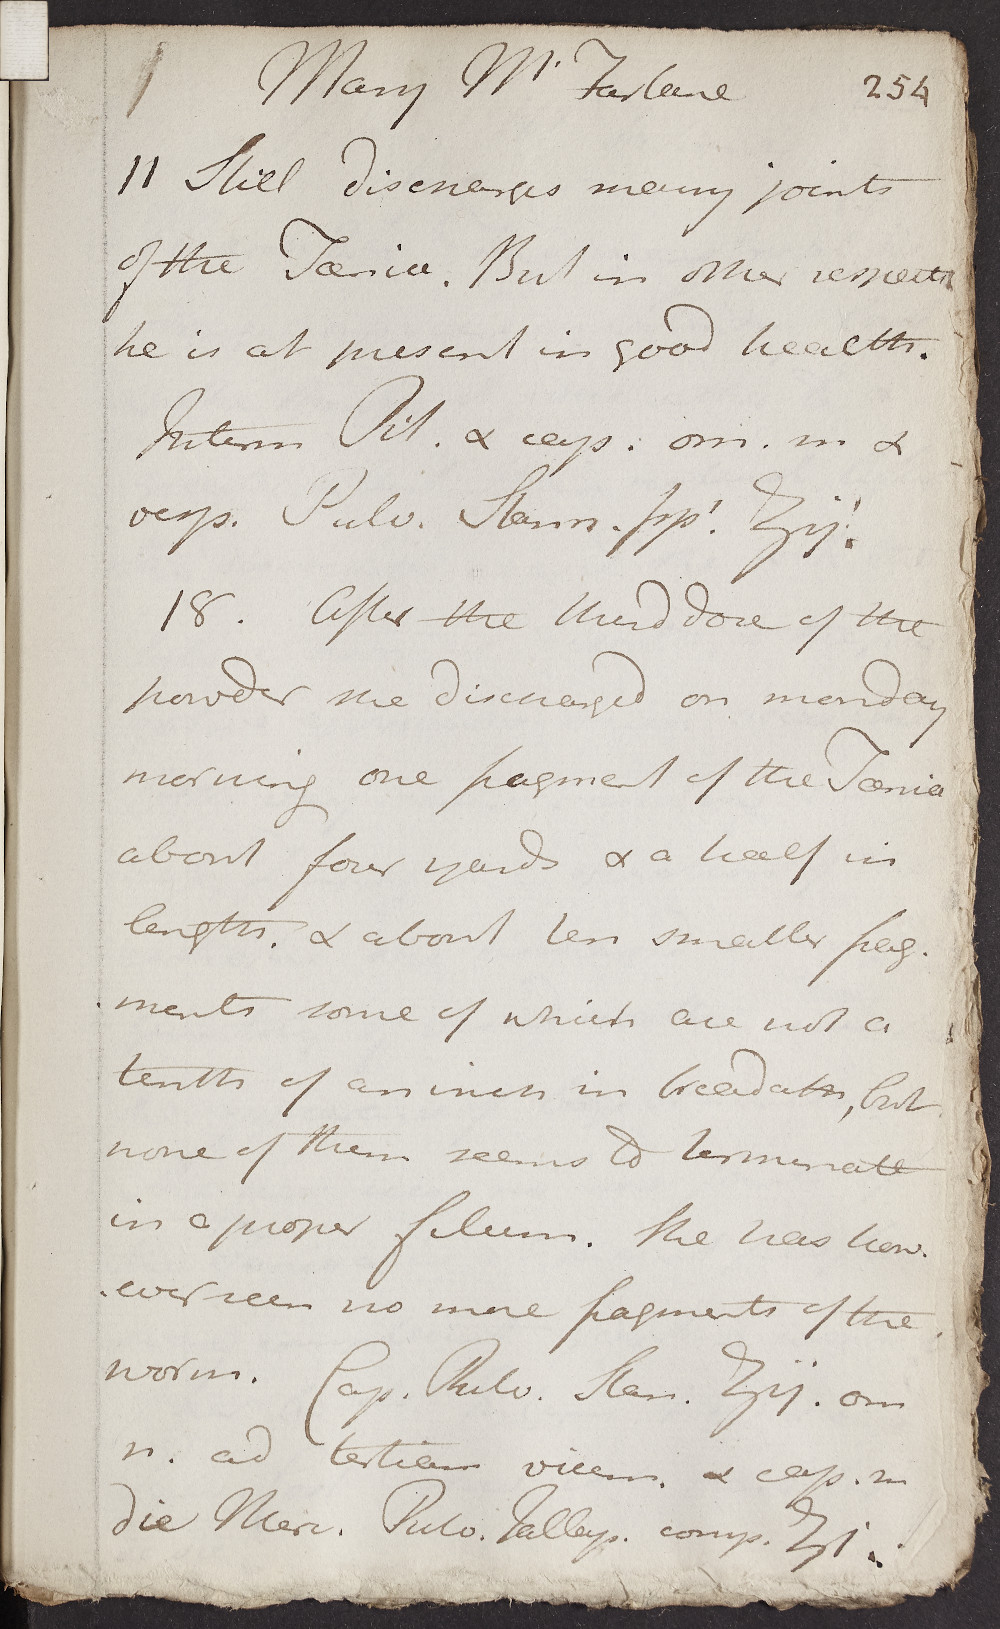 Mary Mc. Farlane 254
11 Still discharges many joints
of the Tænia. But in other respects
he is at present in good health.
Interm Pil. & cap. om. m &
vesp. Pulv. Stann. ppt. ʒij.
18. After the third dose of the
powder she discharged on monday
morning one fragment of the Tænia
about four yards & a half in
length. & about ten smaller frag-
ments some of which are not a
tenth of an inch in breadath, but
none of them seems to terminate
in a proper filum. She has how-
-ever seen no more fragments of the
worm. Cap. Pulv. Stan. ʒij. om
n. ad tertiam vicem. & cap. m
die Merc. Pulv. Jallap. comp. ʒi.